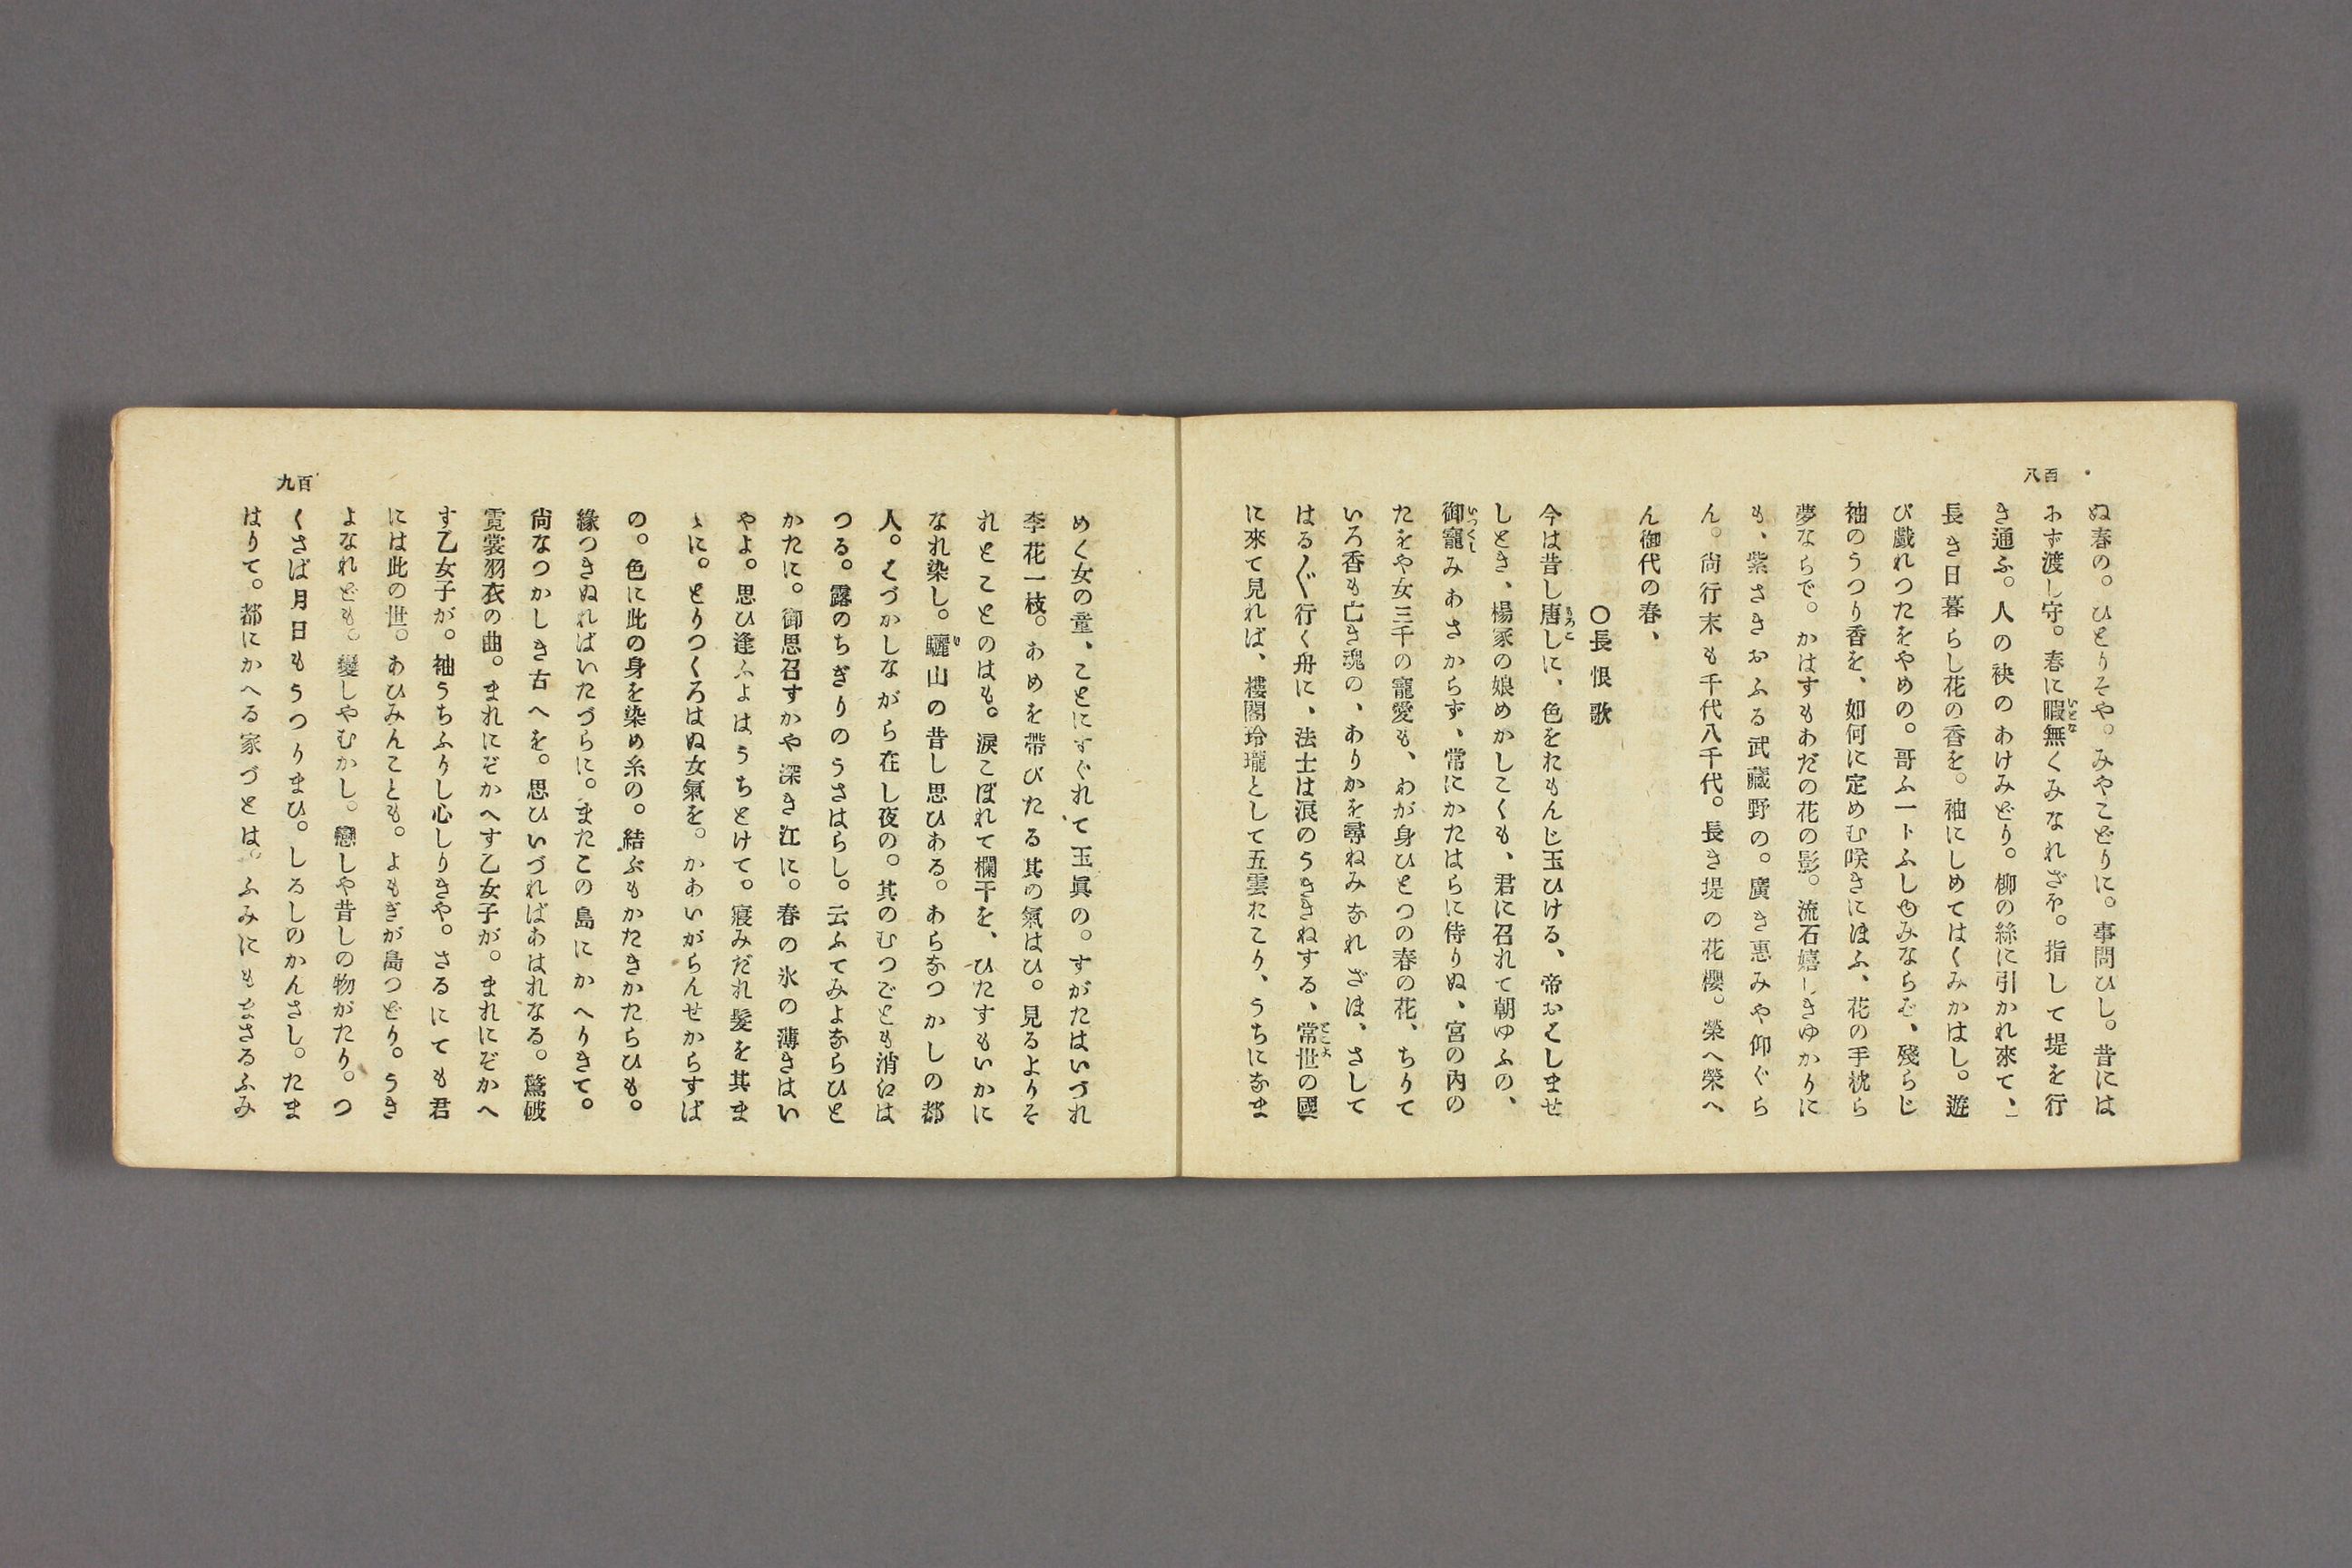 百八
ぬ春の。ひとりそや。みやこどりに。事問ひし。昔には
おず渡し守。春に暇無くみなれざを。指して堤を行
き通ふ。人の袂のあけみどり。柳の絲に引かれ來て、
長き日暮らし花の香を。袖にしめてはくみかはし。遊
び戯れつたをやめの。哥ふ一トふしのみならむ、殘らじ
袖のうつり香を、如何に定めむ咲きにほふ、花の手枕ら
夢ならで。かはすもあだの花の影。流石嬉しきゆかりに
も、紫さきおふる武藏野の。廣き惠みや仰ぐら
ん。尙行末も千代八千代。長き堤の花櫻。榮へ榮へ
ん御代の春、
〇長恨歌
今は昔し唐しに、色をおもんじ玉ひける、帝おはしませ
しとき、楊家の娘めかしこくも、君に召れて朝ゆふの、
御寵みあさからず、常にかたはらに侍りぬ、宮の內の
たをや女三千の寵愛も、わが身ひとつの春の花、ちりて
いろ香も亡き魂の、ありかを尋ねみなれざほ、さして
はる〲行く舟に、法士は淚のうききねする、常世の國
に來て見れば、樓閣玲瓏として五雲たこり、うちになま
百九
めく女の童、ことにすぐれて玉眞の。すがたはいづれ
李花一枝。あめを帶びたる其の氣はひ。見るよりそ
れとことのはも。淚こぼれて欄干を、ひたすもいかに
なれ染し。驪山の昔し思ひある。あらなつかしの都
人。はづかしながら在し夜の。其のむつごとも消口は
つる。露のちぎりのうさはらし。云ふてみよならひと
かたに。御思召すかや深き江に。春の氷の薄きはい
やよ。思ひ逢ふよはうちとけて。寢みだれ髮を其ま
ゝに。とりつくろはぬ女氣を。かあいがらんせからすば
の。色に此の身を染め糸の。結ぶもかたきかたらひも。
緣つきぬればいたづらに。またこの島にかへりきて。
尙なつかしき古へを。思ひいづればあはれなる。驚破
霓裳羽衣の曲。まれにぞかへす乙女子が。まれにぞかへ
す乙女子が。袖うちふりし心しりきや。さるにても君
には此の世。あひみんことも。よもぎが島つどり。うき
よなれども。戀しやむかし。戀しや昔しの物がたり。つ
くさば月日もうつりまひ。しるしのかんさし。たま
はりて。都にかへる家づとは。ふみにもまさるふみ